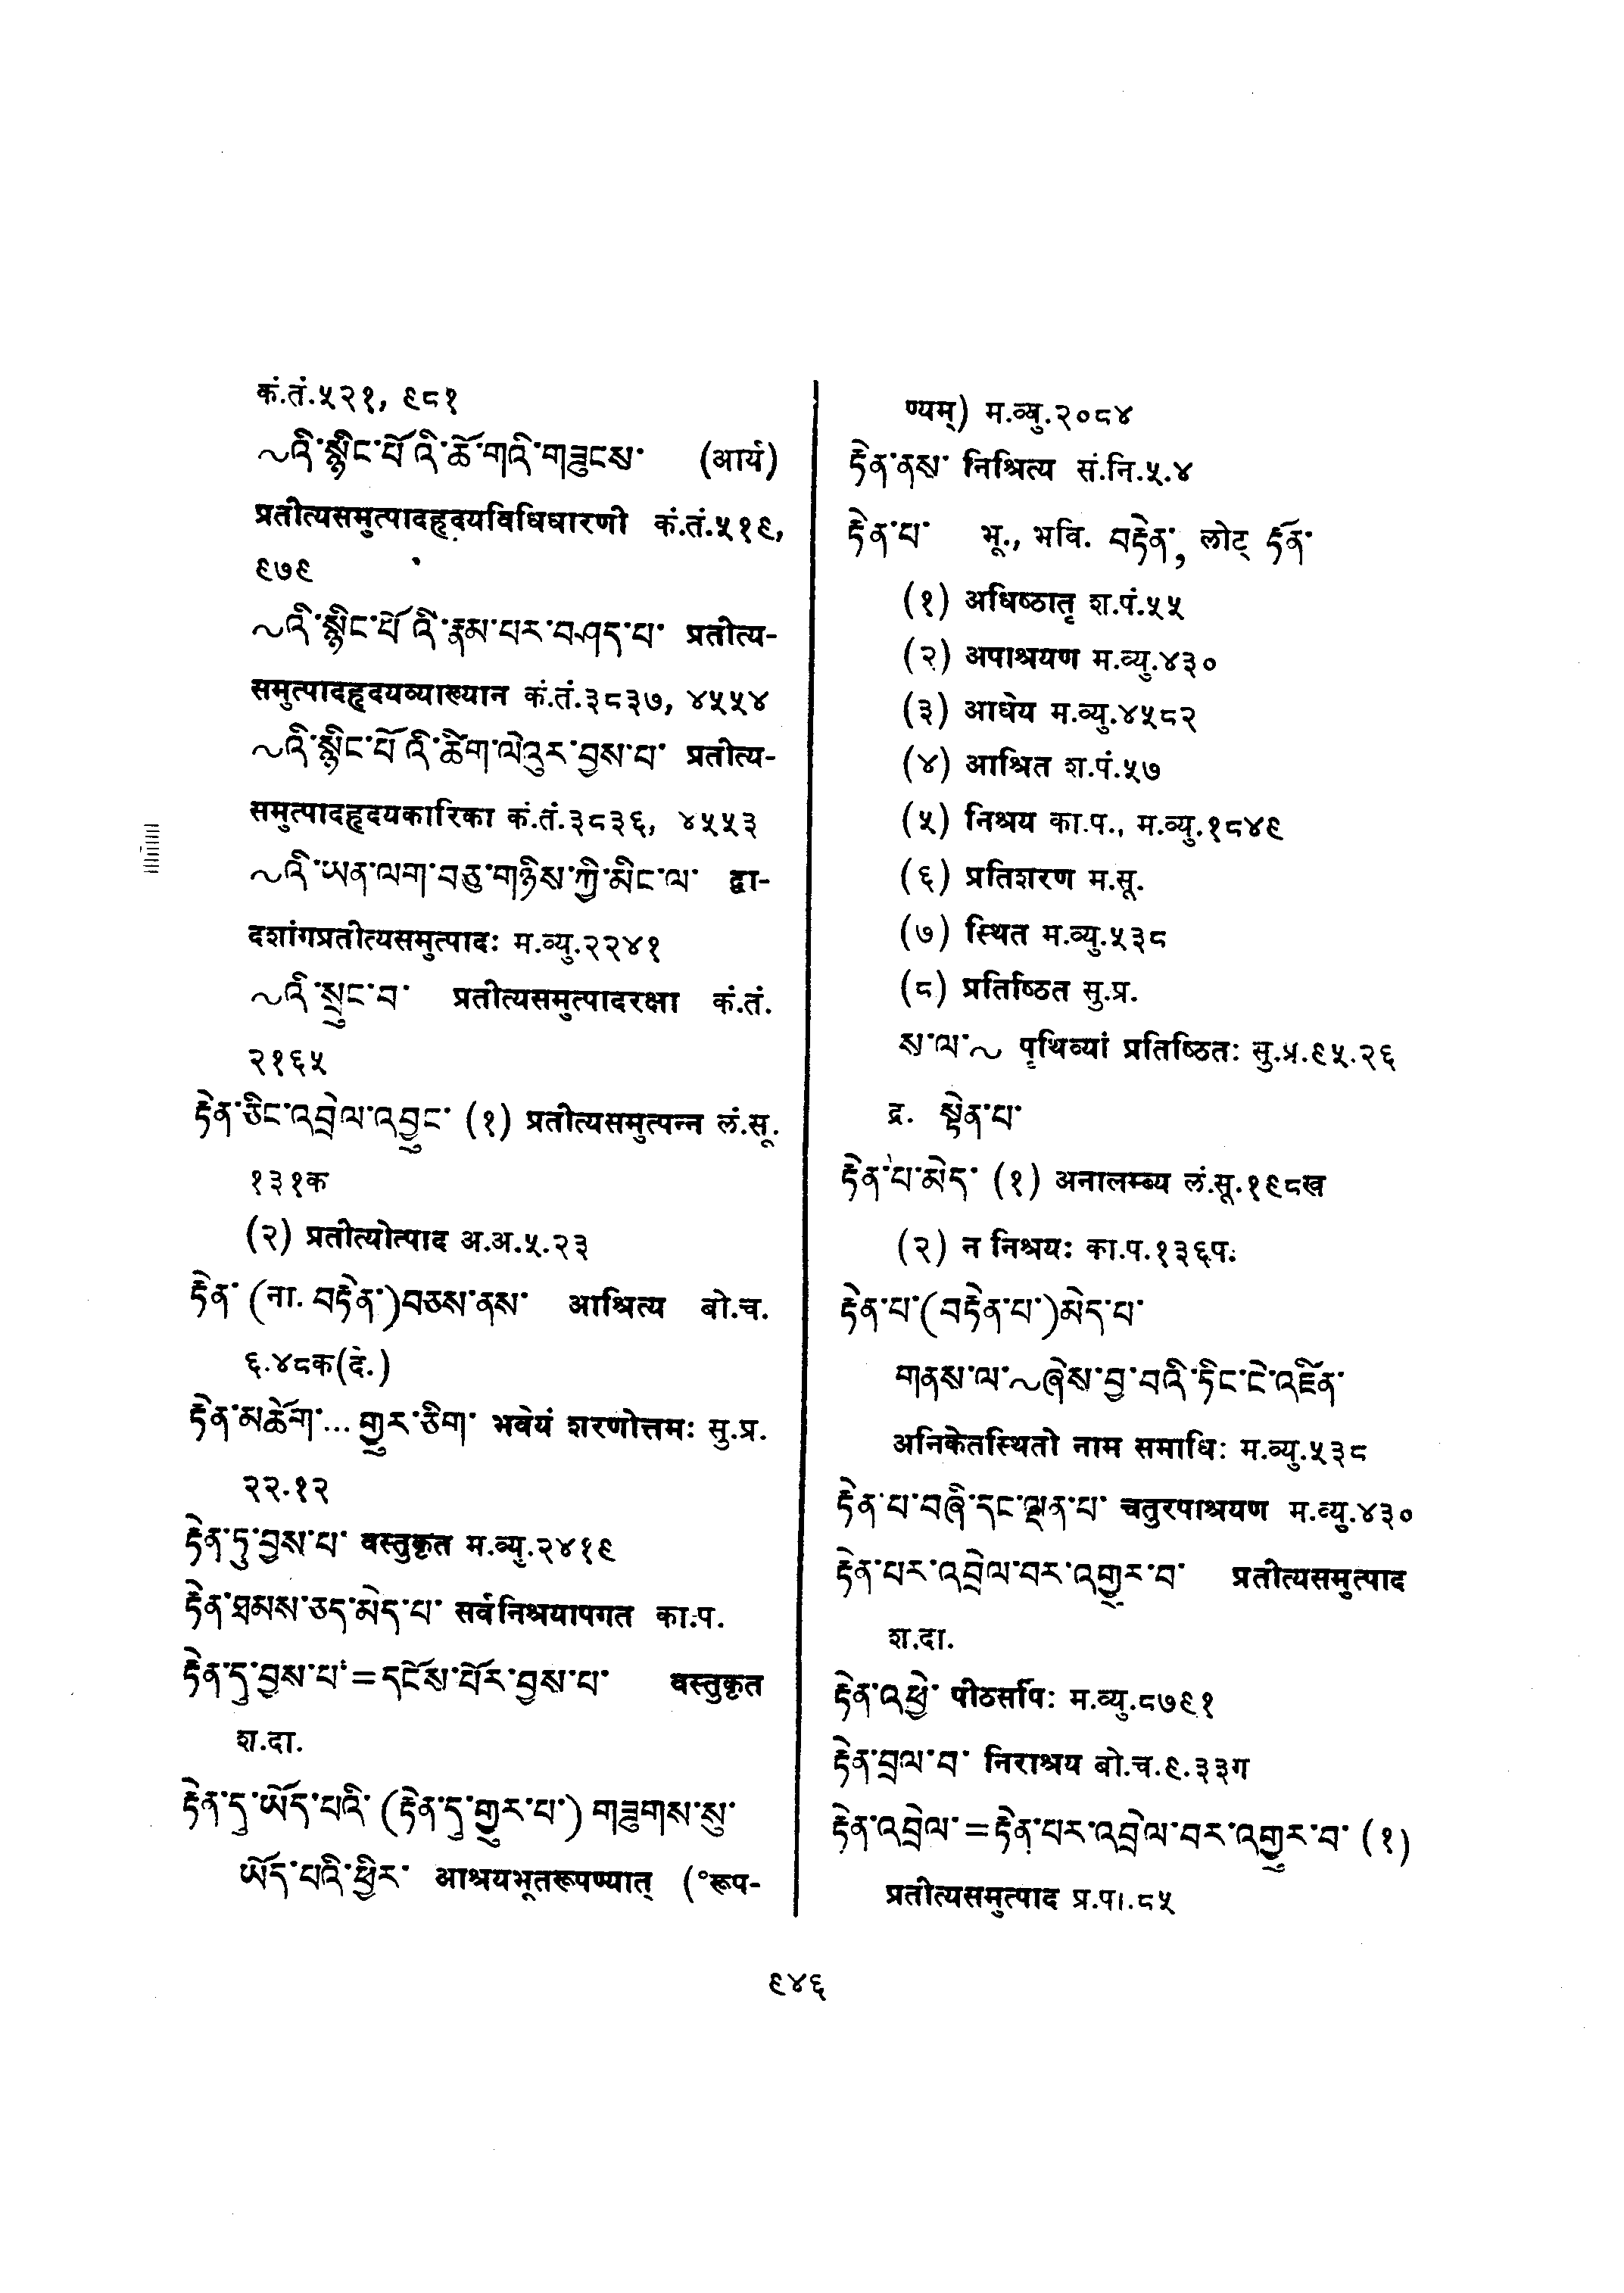 कं.तं.५२१, ९८१
~འི་སྙིང་པོ་འི་ཆོ་གའི་གཟུངས་ (आर्य)
प्रतीत्यसमुत्पादहृदयविधिधारणी कं.तं.५१९,
९७९
~འི་སྙིང་པོ་འི་རྣམ་པར་བཤད་པ་ प्रतीत्य-
समुत्पादहृदयव्याख्यान कं.तं.३८३७, ४५५४
~འི་སྙིང་པོ་འི་ཚིག་ལེའུར་བྱས་པ་ प्रतीत्य-
समुत्पादहृदयकारिका कं.तं.३८३६, ४५५३
~འི་ཡན་ལག་བཅུ་གཉིས་ཀྱི་མིང་ལ་ द्वा-
दशांगप्रतीत्यसमुत्पादः म.व्यु.२२४१
~འི་སྲུང་བ་ प्रतीत्यसमुत्पादरक्षा कं.तं.
२१६५
རྟེན་ཅིང་འབྲེལ་འབྱུང་ (१) प्रतीत्यसमुत्पन्न लं.सू.
१३१क
(२) प्रतीत्योत्पाद अ.अ.५.२३
རྟེན་ (ना. བརྟེན་)བཅས་ནས་ आश्रित्य बो.च.
६.४८क(दे.)
རྟེན་མཆོག་... གྱུར་ཅིག་ भवेयं शरणोत्तमः सु.प्र.
२२.१२
རྟེན་དུ་བྱས་པ་ वस्तुकृत म.व्यु.२४१९
རྟེན་ཐམས་ཅད་མེད་པ་ सर्वनिश्रयापगत का.प.
རྟེན་དུ་བྱས་པ་=དངོས་པོར་བྱས་པ་ वस्तुकृत
श.दा.
རྟེན་དུ་ཡོད་པའི་ (རྟེན་དུ་གྱུར་པ་) གཟུགས་སུ་
ཡོད་པའི་ཕྱིར་ आश्रयभूतरूपण्यात् (°रूप-
ण्यम्) म.व्यु.२०८४
རྟེན་ནས་ निश्रित्य सं.नि.५.४
རྟེན་པ་ भू., भवि. བརྟེན་, लोट् རྟོན་
(१) अधिष्ठातृ श.पं.५५
(२) अपाश्रयण म.व्यु.४३०
(३) आधेय म.व्यु.४५८२
(४) आश्रित श.पं.५७
(५) निश्रय का.प., म.व्यु.१८४९
(६) प्रतिशरण म.सू.
(७) स्थित म.व्यु.५३८
(८) प्रतिष्ठित सु.प्र.
ས་ལ་~ पृथिव्यां प्रतिष्ठितः सु.प्र.९५.२६
द्र. སྟེན་པ་
རྟེན་པ་མེད་ (१) अनालम्ब्य लं.सू.१९८ख
(२) न निश्रयः का.प.१३६पः
རྟེན་པ་(བརྟེན་པ་)མེད་པ་
གནས་ལ་~ཞེས་བྱ་བའི་ཏིང་ངེ་འཛིན་
अनिकेतस्थितो नाम समाधिः म.व्यु.५३८
རྟེན་པ་བཞི་དང་ལྡན་པ་ चतुरपाश्रयण म.व्यु.४३०
རྟེན་པར་འབྲེལ་བར་འགྱུར་བ་ प्रतीत्यसमुत्पाद
श.दा.
རྟེན་འཕྱེ་ पीठसर्पिः म.व्यु.८७९१
རྟེན་བྲལ་བ་ निराश्रय बो.च.९.३३ग
རྟེན་འབྲེལ་=རྟེན་པར་འབྲེལ་བར་འགྱུར་བ་ (१)
प्रतीत्यसमुत्पाद प्र.पा.८५
९४६